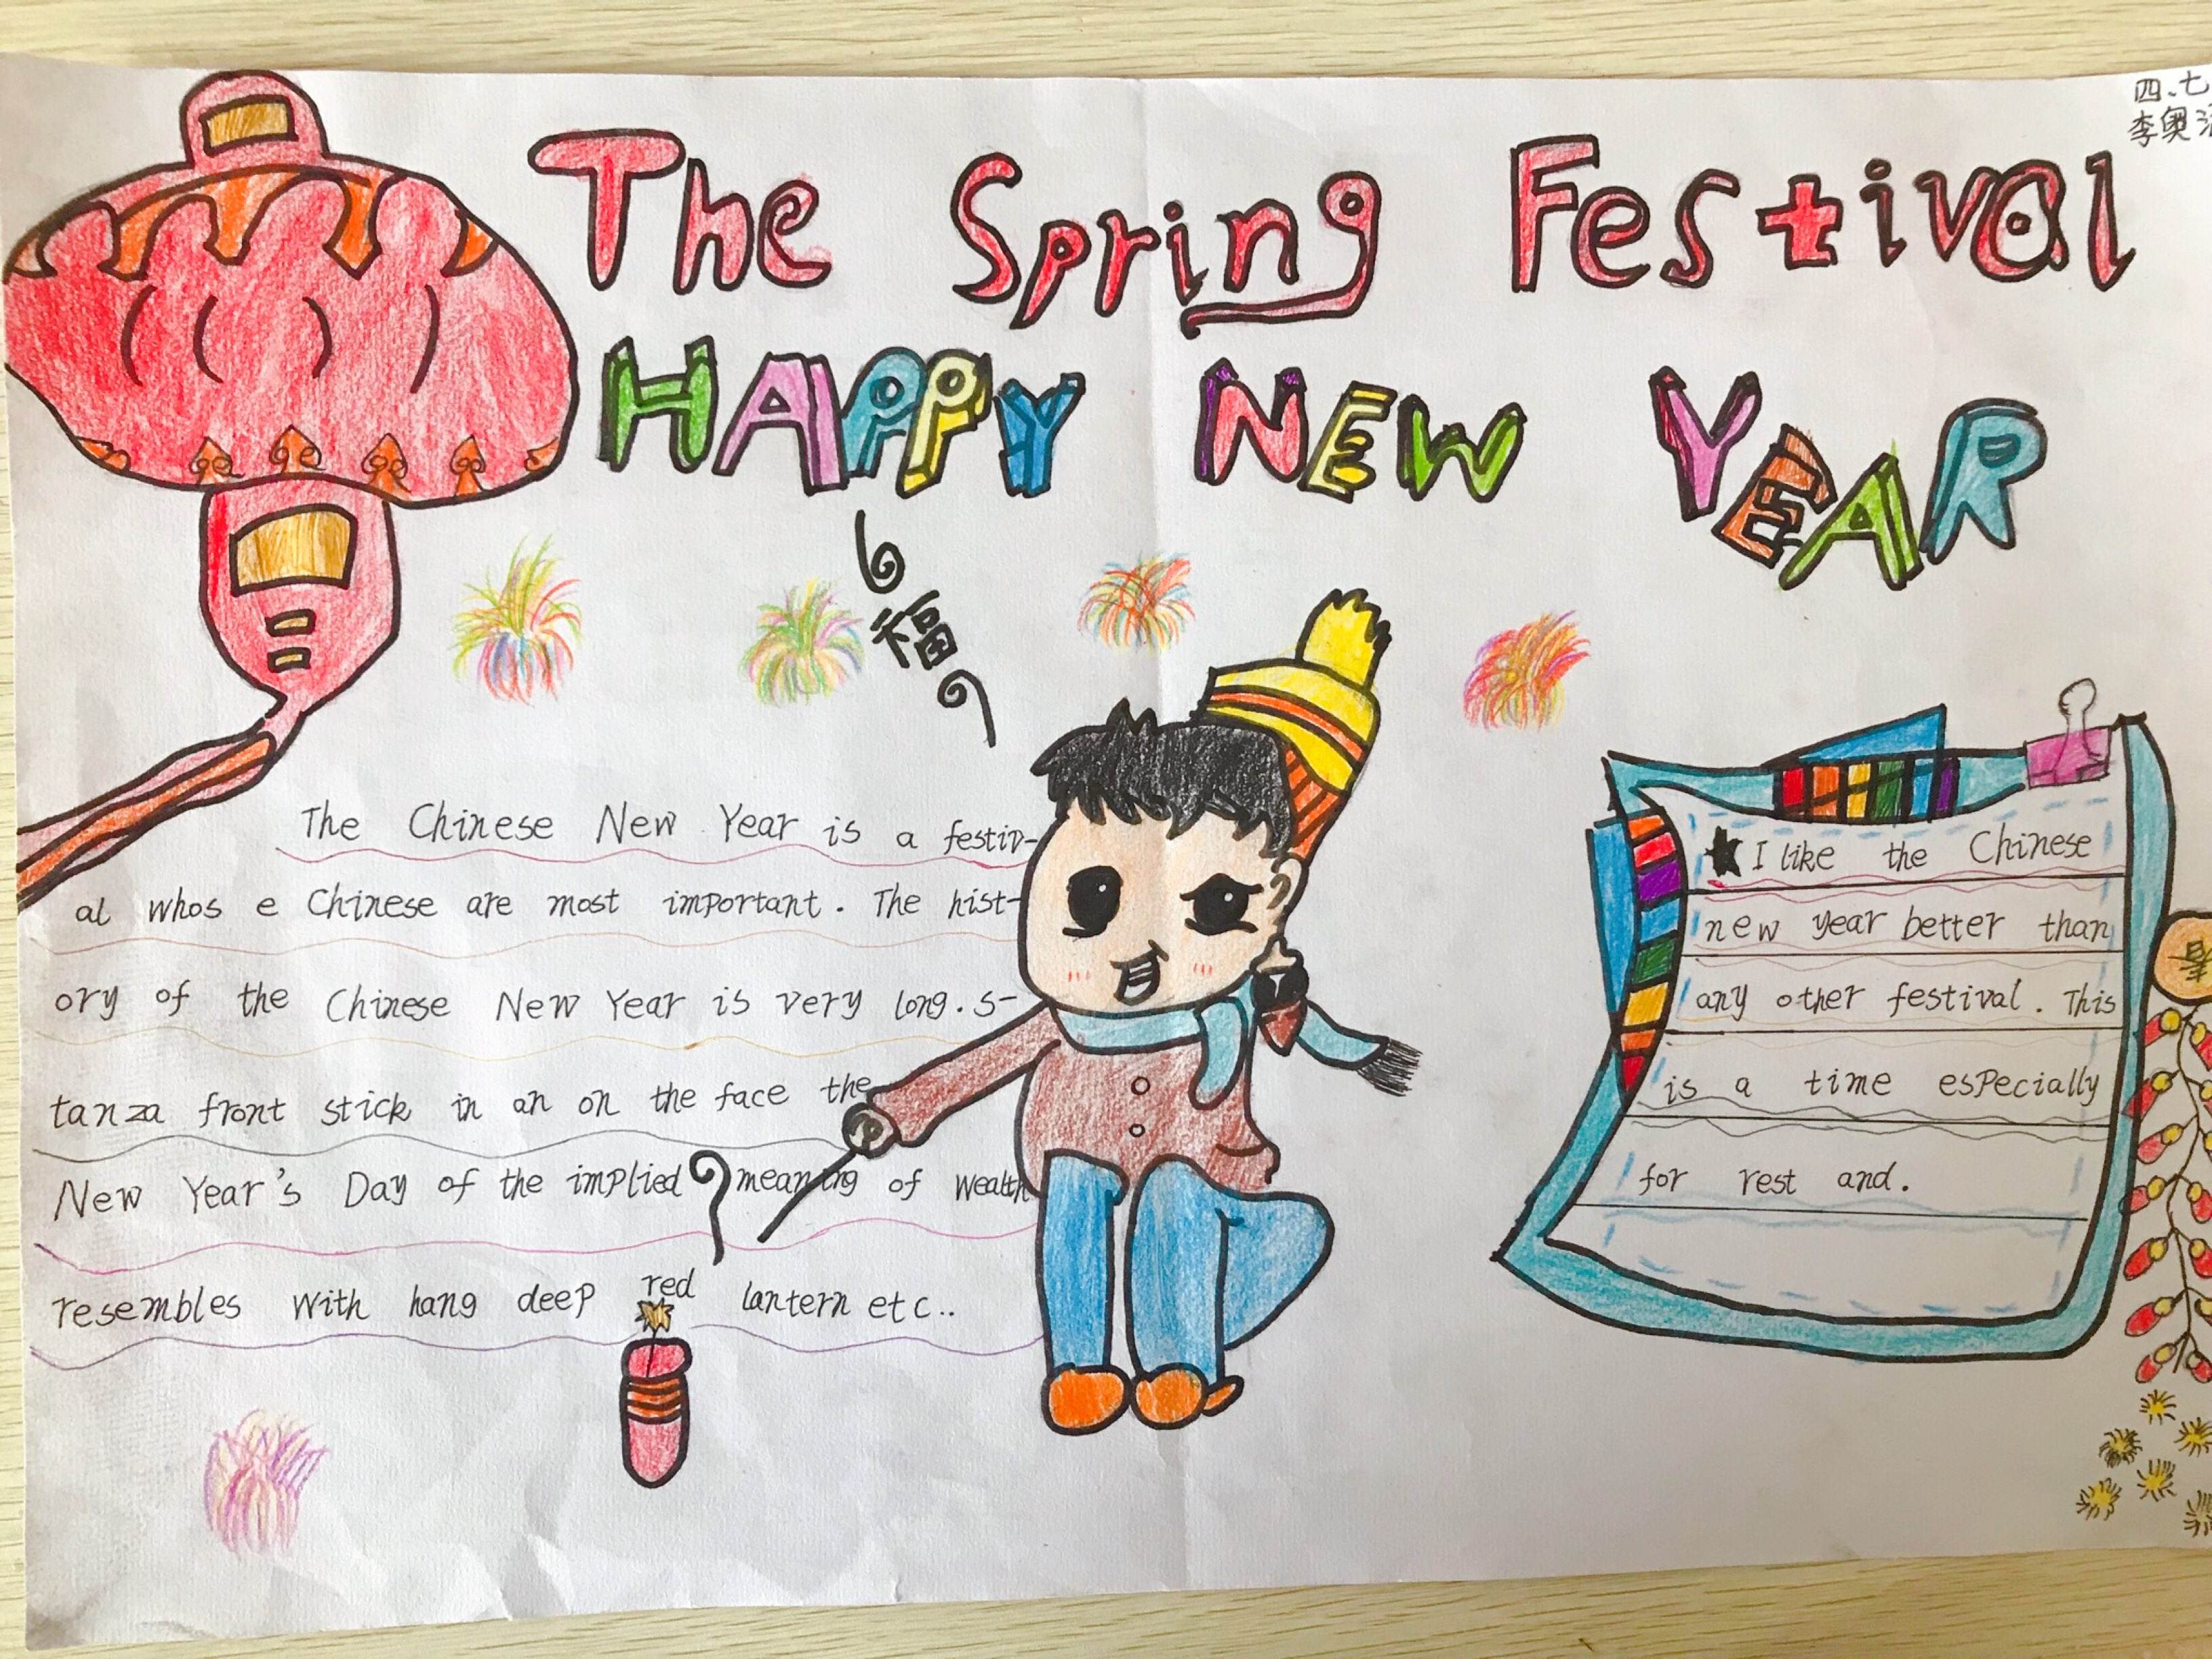 四、七
李奥
The Spring Festival
HAPPY NEW YEAR
福
The Chinese New Year is a festiv-
al whos e Chinese are most important. The hist-
ory of the Chinese New Year is very long. s-
tanza front stick in an on the face the
New Year's Day of the implied meaning of wealth
resembles with hang deep red lantern etc..
I like the Chinese
new year better than
any other festival. This
is a time especially
for rest and.
春